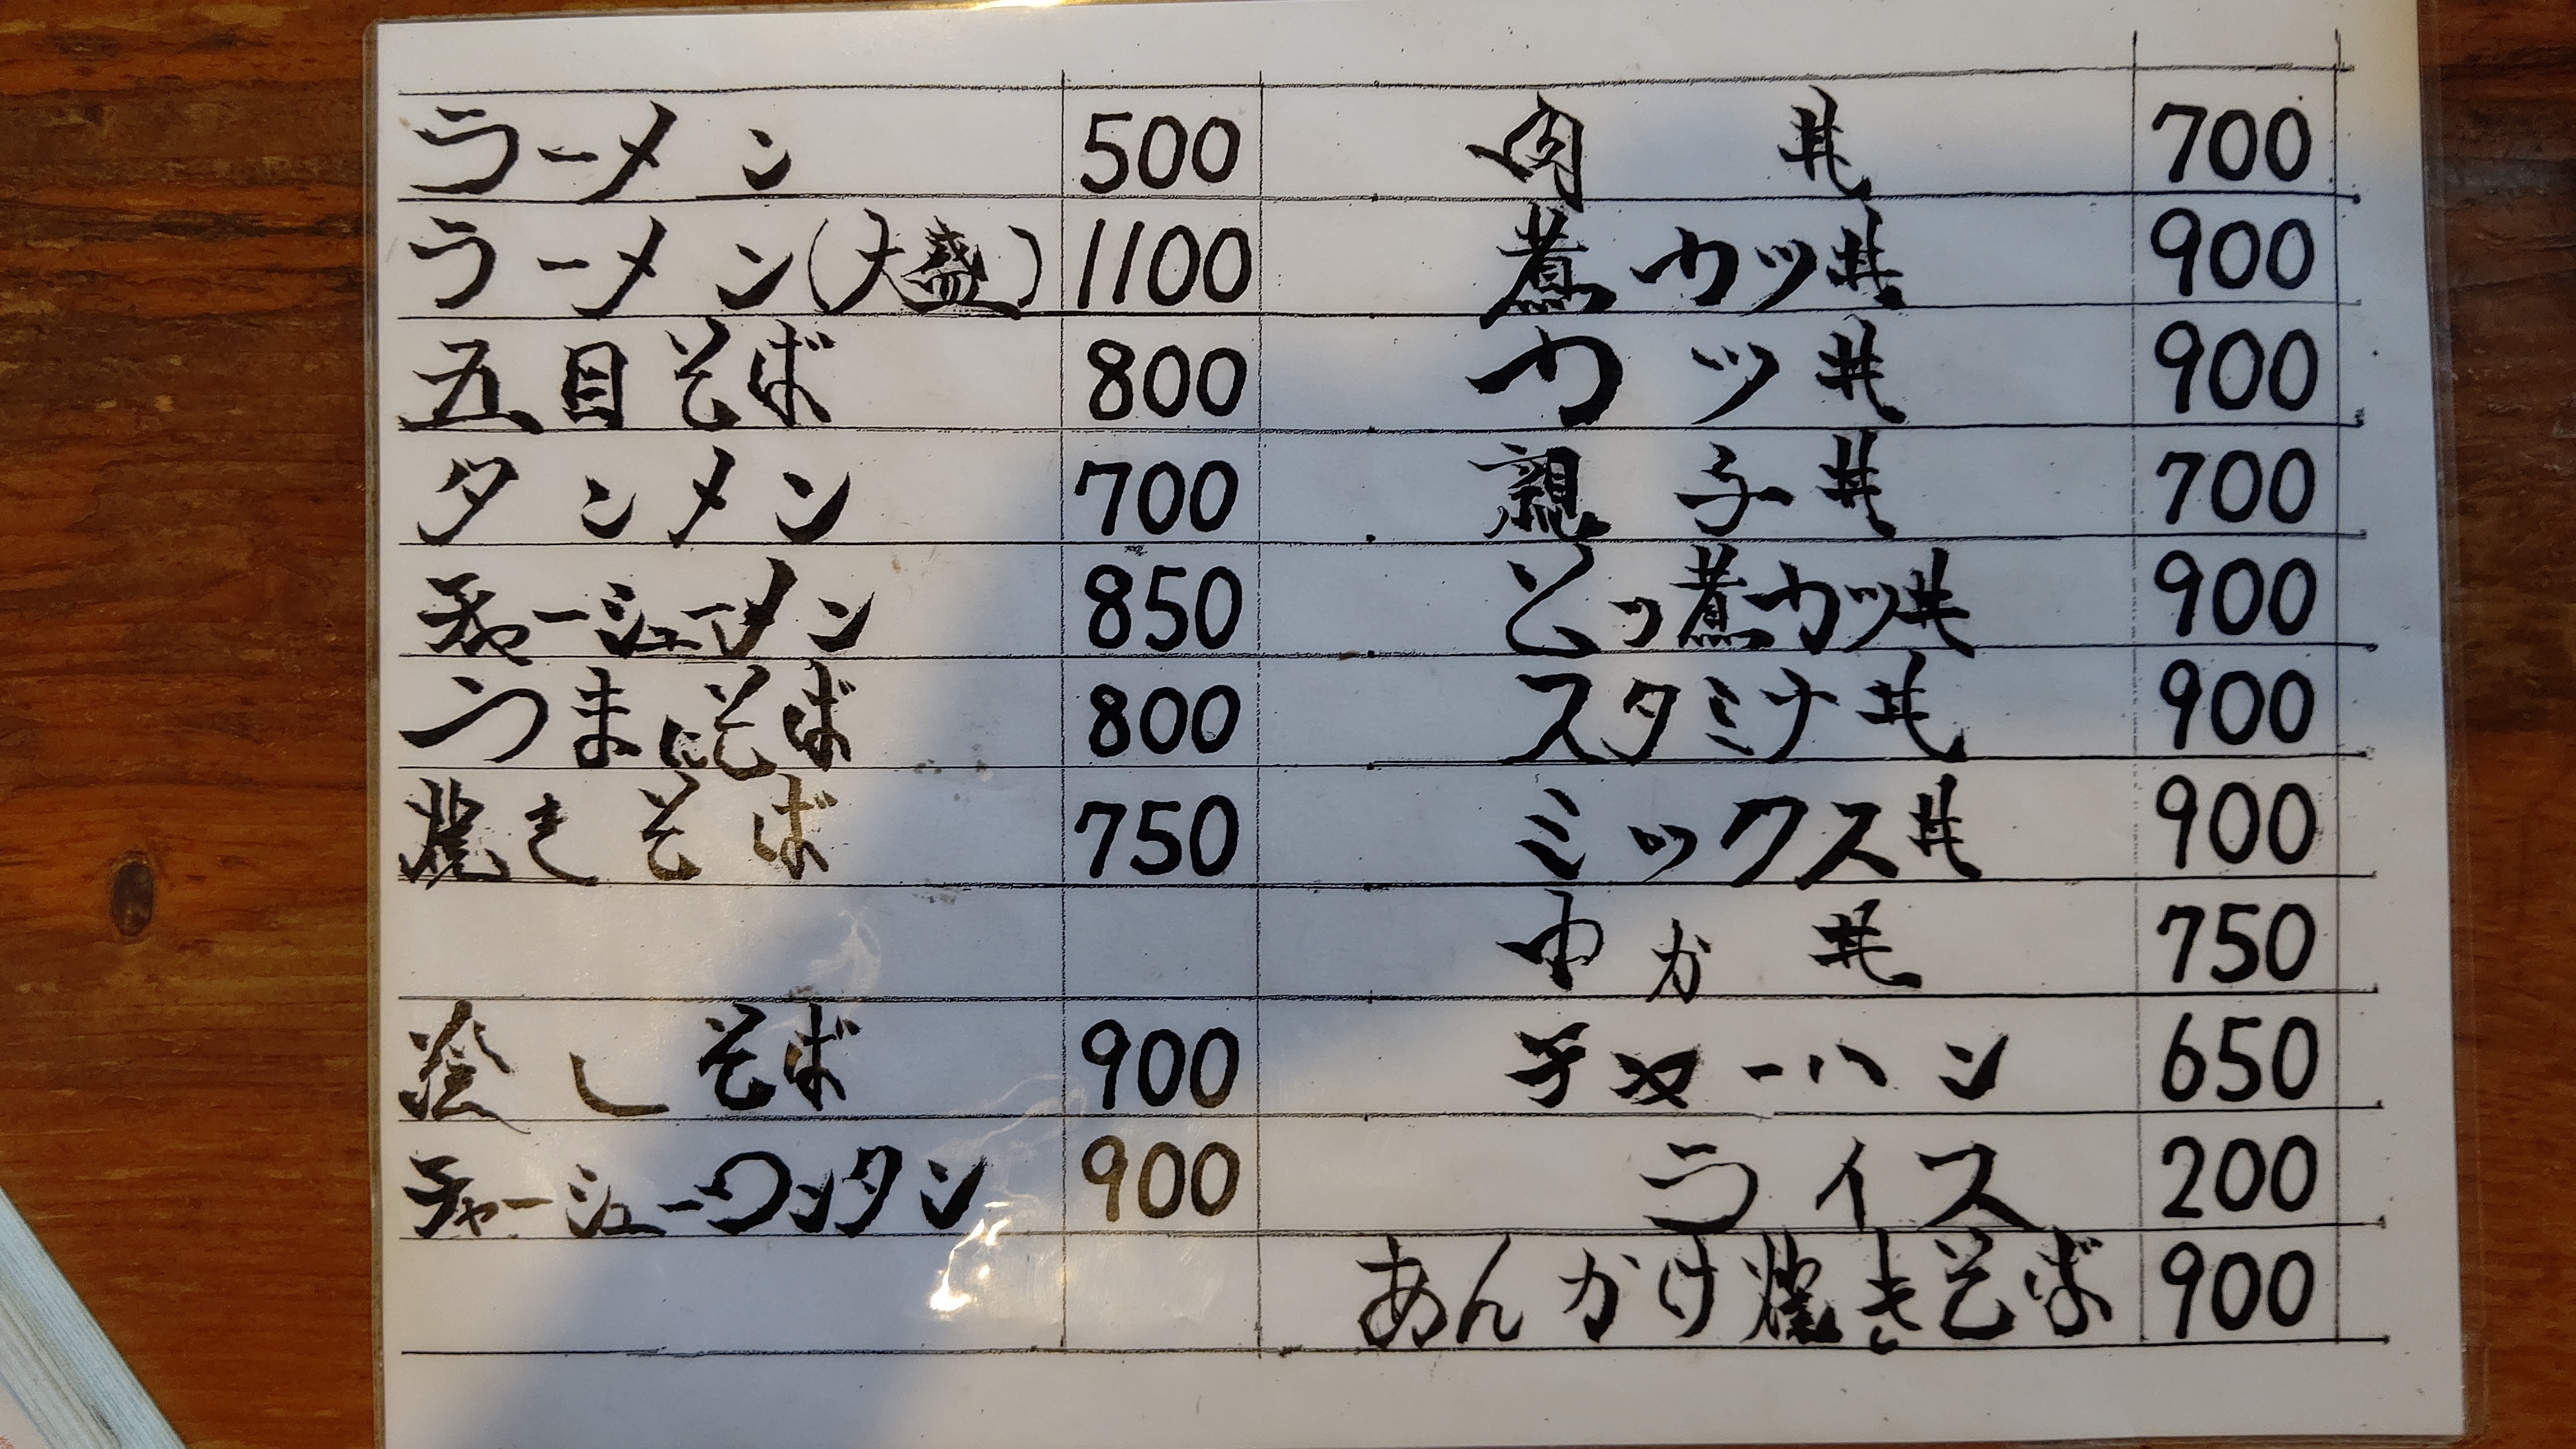 ラーメン 500
ラーメン(大盛) 1100
五目そば 800
タンメン 700
チャーシューメン 850
うまにそば 800
焼きそば 750
冷しそば 900
チャーシューワンタン 900
肉丼 700
煮カツ丼 900
カツ丼 900
親子丼 700
とッ煮カツ丼 900
スタミナ丼 900
ミックス丼 900
中か丼 750
チャーハン 650
ライス 200
あんかけ焼きそば 900